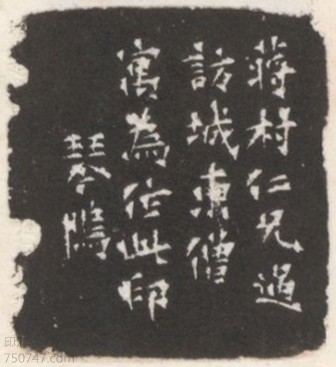 蔣村仁兄過
訪城東僧
寓為作此印
琴隖
750747.com